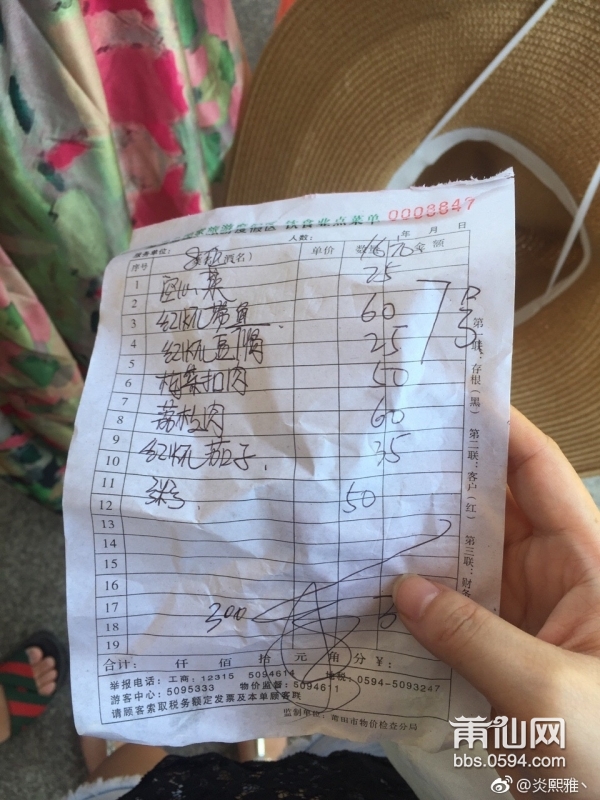 旅游度假区 饮食业点菜单 0003847
服务单位: 人数: 年 月 日
序号 (菜名) 单价 数量 金额
1 空心菜 25
2
3 红烧带鱼 60
4 红烧豆腐 25
5
6 梅菜扣肉 50
7
8 荔枝肉 60
9
10 红烧茄子 35
11
12 50
13
14
15
16
17 300
18
19
合计: 仟 佰 拾 元 角 分 ¥:
举报电话: 工商: 12315 5094614 地税: 0594-5093247
游客中心: 5095333 物价监督: 5094611
请顾客索取税务额定发票及本单顾客联
监制单位: 莆田市物价检查分局
第一联:存根(黑) 第二联:客户(红) 第三联:财务
莆仙网
bbs.0594.com
@炎熙雅丶